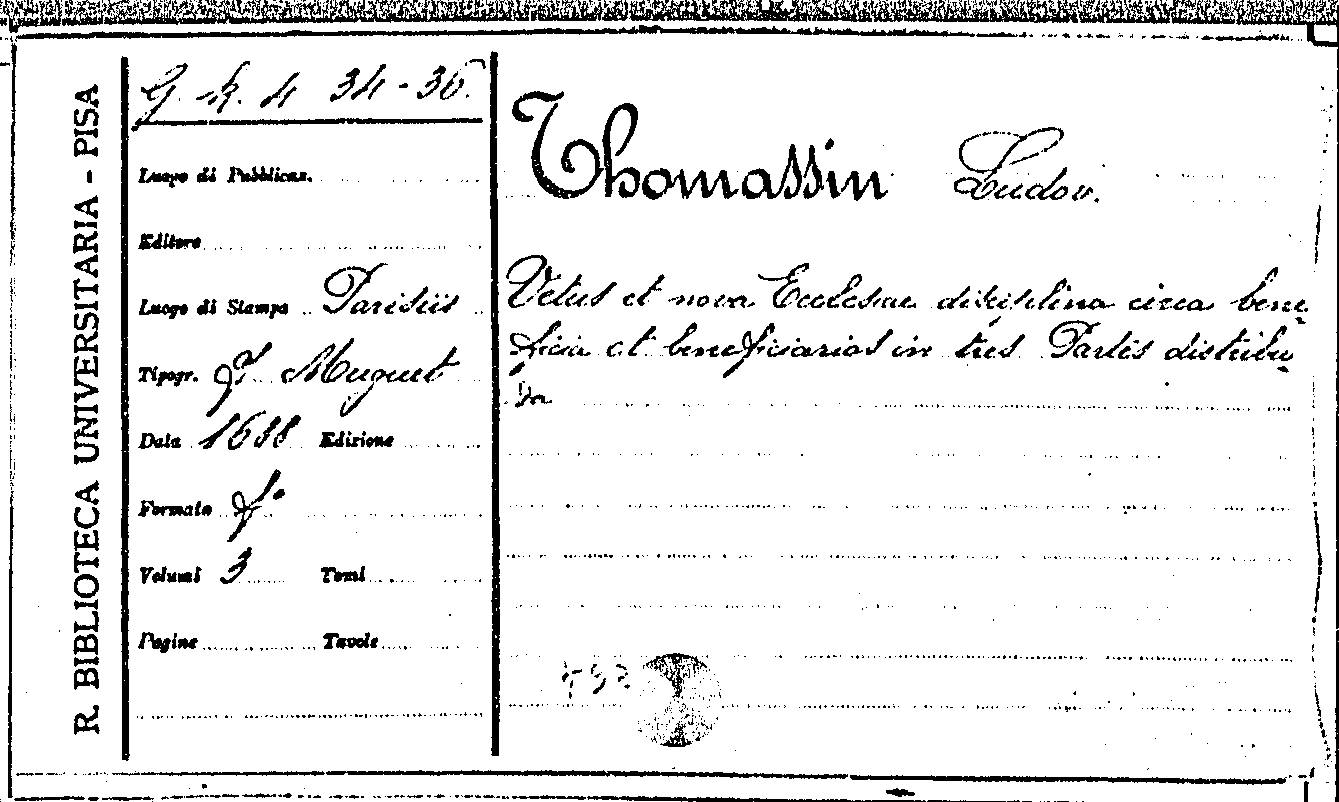 R. BIBLIOTECA UNIVERSITARIA - PISA
G. k. 4 34-36.
Luogo di Pubblicaz.
Editore
Luogo di Stampa Parisiis
Tipogr. F. Muguet
Data 1688 Edizione
Formato fº
Volumi 3 Tomi
Pagine Tavole
Thomassin Ludov.
Vetus et nova Ecclesiae disciplina circa bene
ficia et beneficiarios in tres Partes distribu
ta